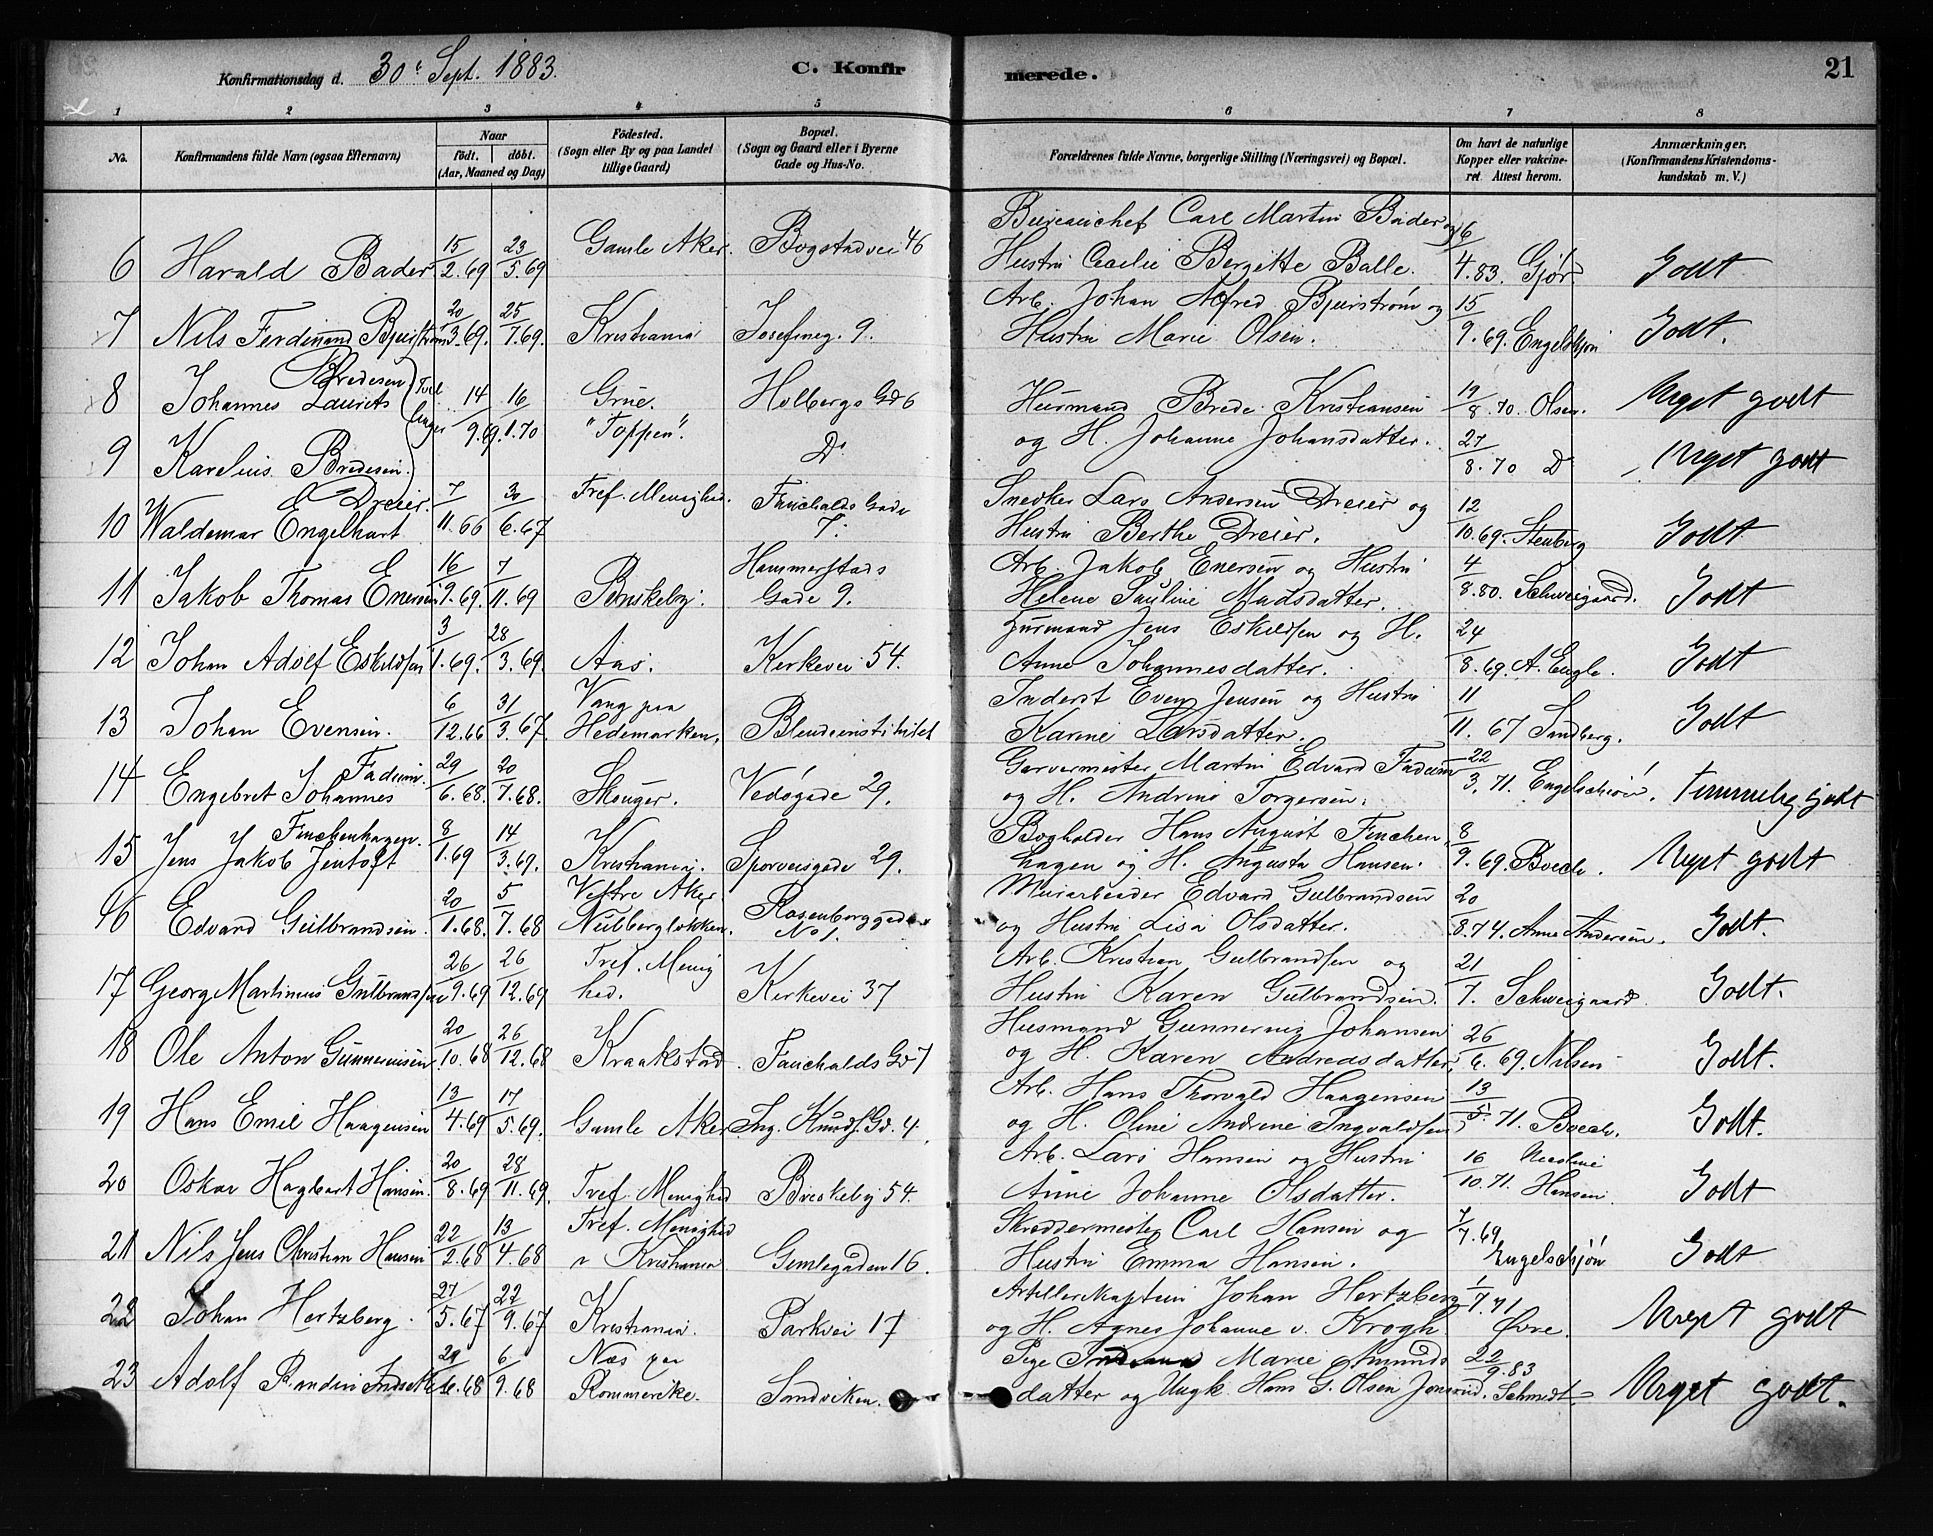 21
Konfirmationsdag d. 30e Sept. 1883.
C. Konfirmerede.
1 2 3 4 5 6 7 8
No.
Konfirmandens fulde Navn (ogsaa Efternavn)
Naar
født. døbt.
(Aar, Maaned og Dag)
Fødested.
(Sogn eller By og paa Landet
tillige Gaard)
Bopæl.
(Sogn og Gaard eller i Byerne
Gade og Hus-No.
Forældrenes fulde Navne, borgerlige Stilling (Næringsvei) og Bopæl.
Om havt de naturlige
Kopper eller vakcine-
ret. Attest herom.
Anmærkninger.
(Konfirmandens Kristendoms-
kundskab m. V.)
6 Harald Bader 15/2.69 23/5.69 Gamle Aker. Bogstadvei 46
Bureauchef Carl Martin Bader og
Hustru Cecilie Bergitte Balle. 16/4.83 Gjør. Godt
7 Nils Ferdinand Bjurstrøm 20/3.69. 25/7.69. Kristiania Josefineg. 9.
Arb. Johan Alfred Bjurstrøm og
Hustru Marie Olsen. 15/9.69. Engelskjøn Godt.
8 Johannes Laurits Bredesen Tvillinger 14/9.69. 16/1.70 Grue. "Toppen". Holbergs Gd 6
Husmand Brede Kristiansen
og H. Johanne Johansdatter. 19/8.70. Olsen. Meget godt
9 Karelius Bredesen. Do 27/8.70 Do Meget godt
10 Waldemar Engelhart Dreier. 7/11.66 30/6.67 Tref. Menighed. Fauchalds Gade 7.
Snedker Lars Andersen Dreier og
Hustru Berthe Dreier. 12/10.69. Stenberg Godt
11 Jakob Thomas Enersen 16/9.69. 7/11.69 Briskeby. Hammerstads
Gade 9.
Arb. Jakob Enersen og Hustru
Helene Pauline Madsdatter. 4/8.80. Schweigaard. Godt
12 Johan Adolf Eskildsen 3/1.69. 28/3.69. Aas. Kirkevei 54.
Husmand Jens Eskildsen og H.
Anne Johannesdatter. 24/8.69. A. Engh. Godt
13 Johan Evensen. 6/12.66 31/3.67. Vang paa
Hedemarken. Blindeinstitutet
Inderst Even Jensen og Hustru
Karine Larsdatter. 11/11.67 Sandberg. Godt
14 Engebret Johannes Fadum. 29/6.68. 20/7.68. Skouger. Vedøgade 29.
Garvermester Martin Edvard Fadum
og H. Andrine Torgersen. 22/3.71. Engelschiøn. Temmelig godt
15 Jens Jakob Jentoft Finckenhagen. 8/1.69 14/3.69. Kristiania. Sporveisgade 29.
Bogholder Hans August Fincken-
hagen og H. Augusta Hansen. 8/9.69. Boeck. Meget godt
16 Edvard Gulbrandsen. 20/1.68. 5/7.68 Vestre Aker
Nubberløkken. Rosenborggade
No 1.
Murarbeider Edvard Gulbrandsen
og Hustru Lisa Olsdatter. 20/8.74. Anne Andersen. Godt.
17 Georg Martinius Gulbrandsen 26/9.69 26/12.69 Tref. Menig
hed. Kirkevei 37
Arb. Kristian Gulbrandsen og
Hustru Karen Gulbrandsen. 21/7. Schweigaard. Godt.
18 Ole Anton Gunneriusen 20/10.68 26/12.68 Kraakstad. Fauchalds Gd 7
Husmand Gunnerius Johansen
og H. Karen Andreasdatter. 26/6.69. Nilsen Godt.
19 Hans Emil Haagensen 13/4.69 17/5.69. Gamle Aker. Ing. Knuds. Gd. 4.
Arb. Hans Thorvald Haagensen
og H. Oline Andrine Ingvaldsen 13/5.71. Boeck. Godt.
20 Oskar Hagbart Hansen. 20/8.69 28/11.69. Tref. Menighed Briskeby 54.
Arb. Lars Hansen og Hustru
Anne Johanne Olsdatter. 16/10.71. Nicoline
Hansen. Godt
21 Nils Jens Christian Hansen 22/2.68 13/4.68 Tref. Menighed
i Kristiania Gimlegaden 16.
Skræddermester Carl Hansen og
Hustru Emma Hansen. 7/7.69 Engelschjøn Godt
22 Johan Hertzberg. 27/5.67 22/9.67 Kristiania. Parkvei 17
Artillerikaptein Johan Hertzberg
og H. Agnes Johanne v. Krogh. 1/7.71 Øvre. Meget godt
23 Adolf 6/9.68 Næs paa
Romerike. Sandviken.
Pige Marie Amunds
datter og Ungk. Hans G. Olsen 22/9.83 Schmidt. Meget godt.